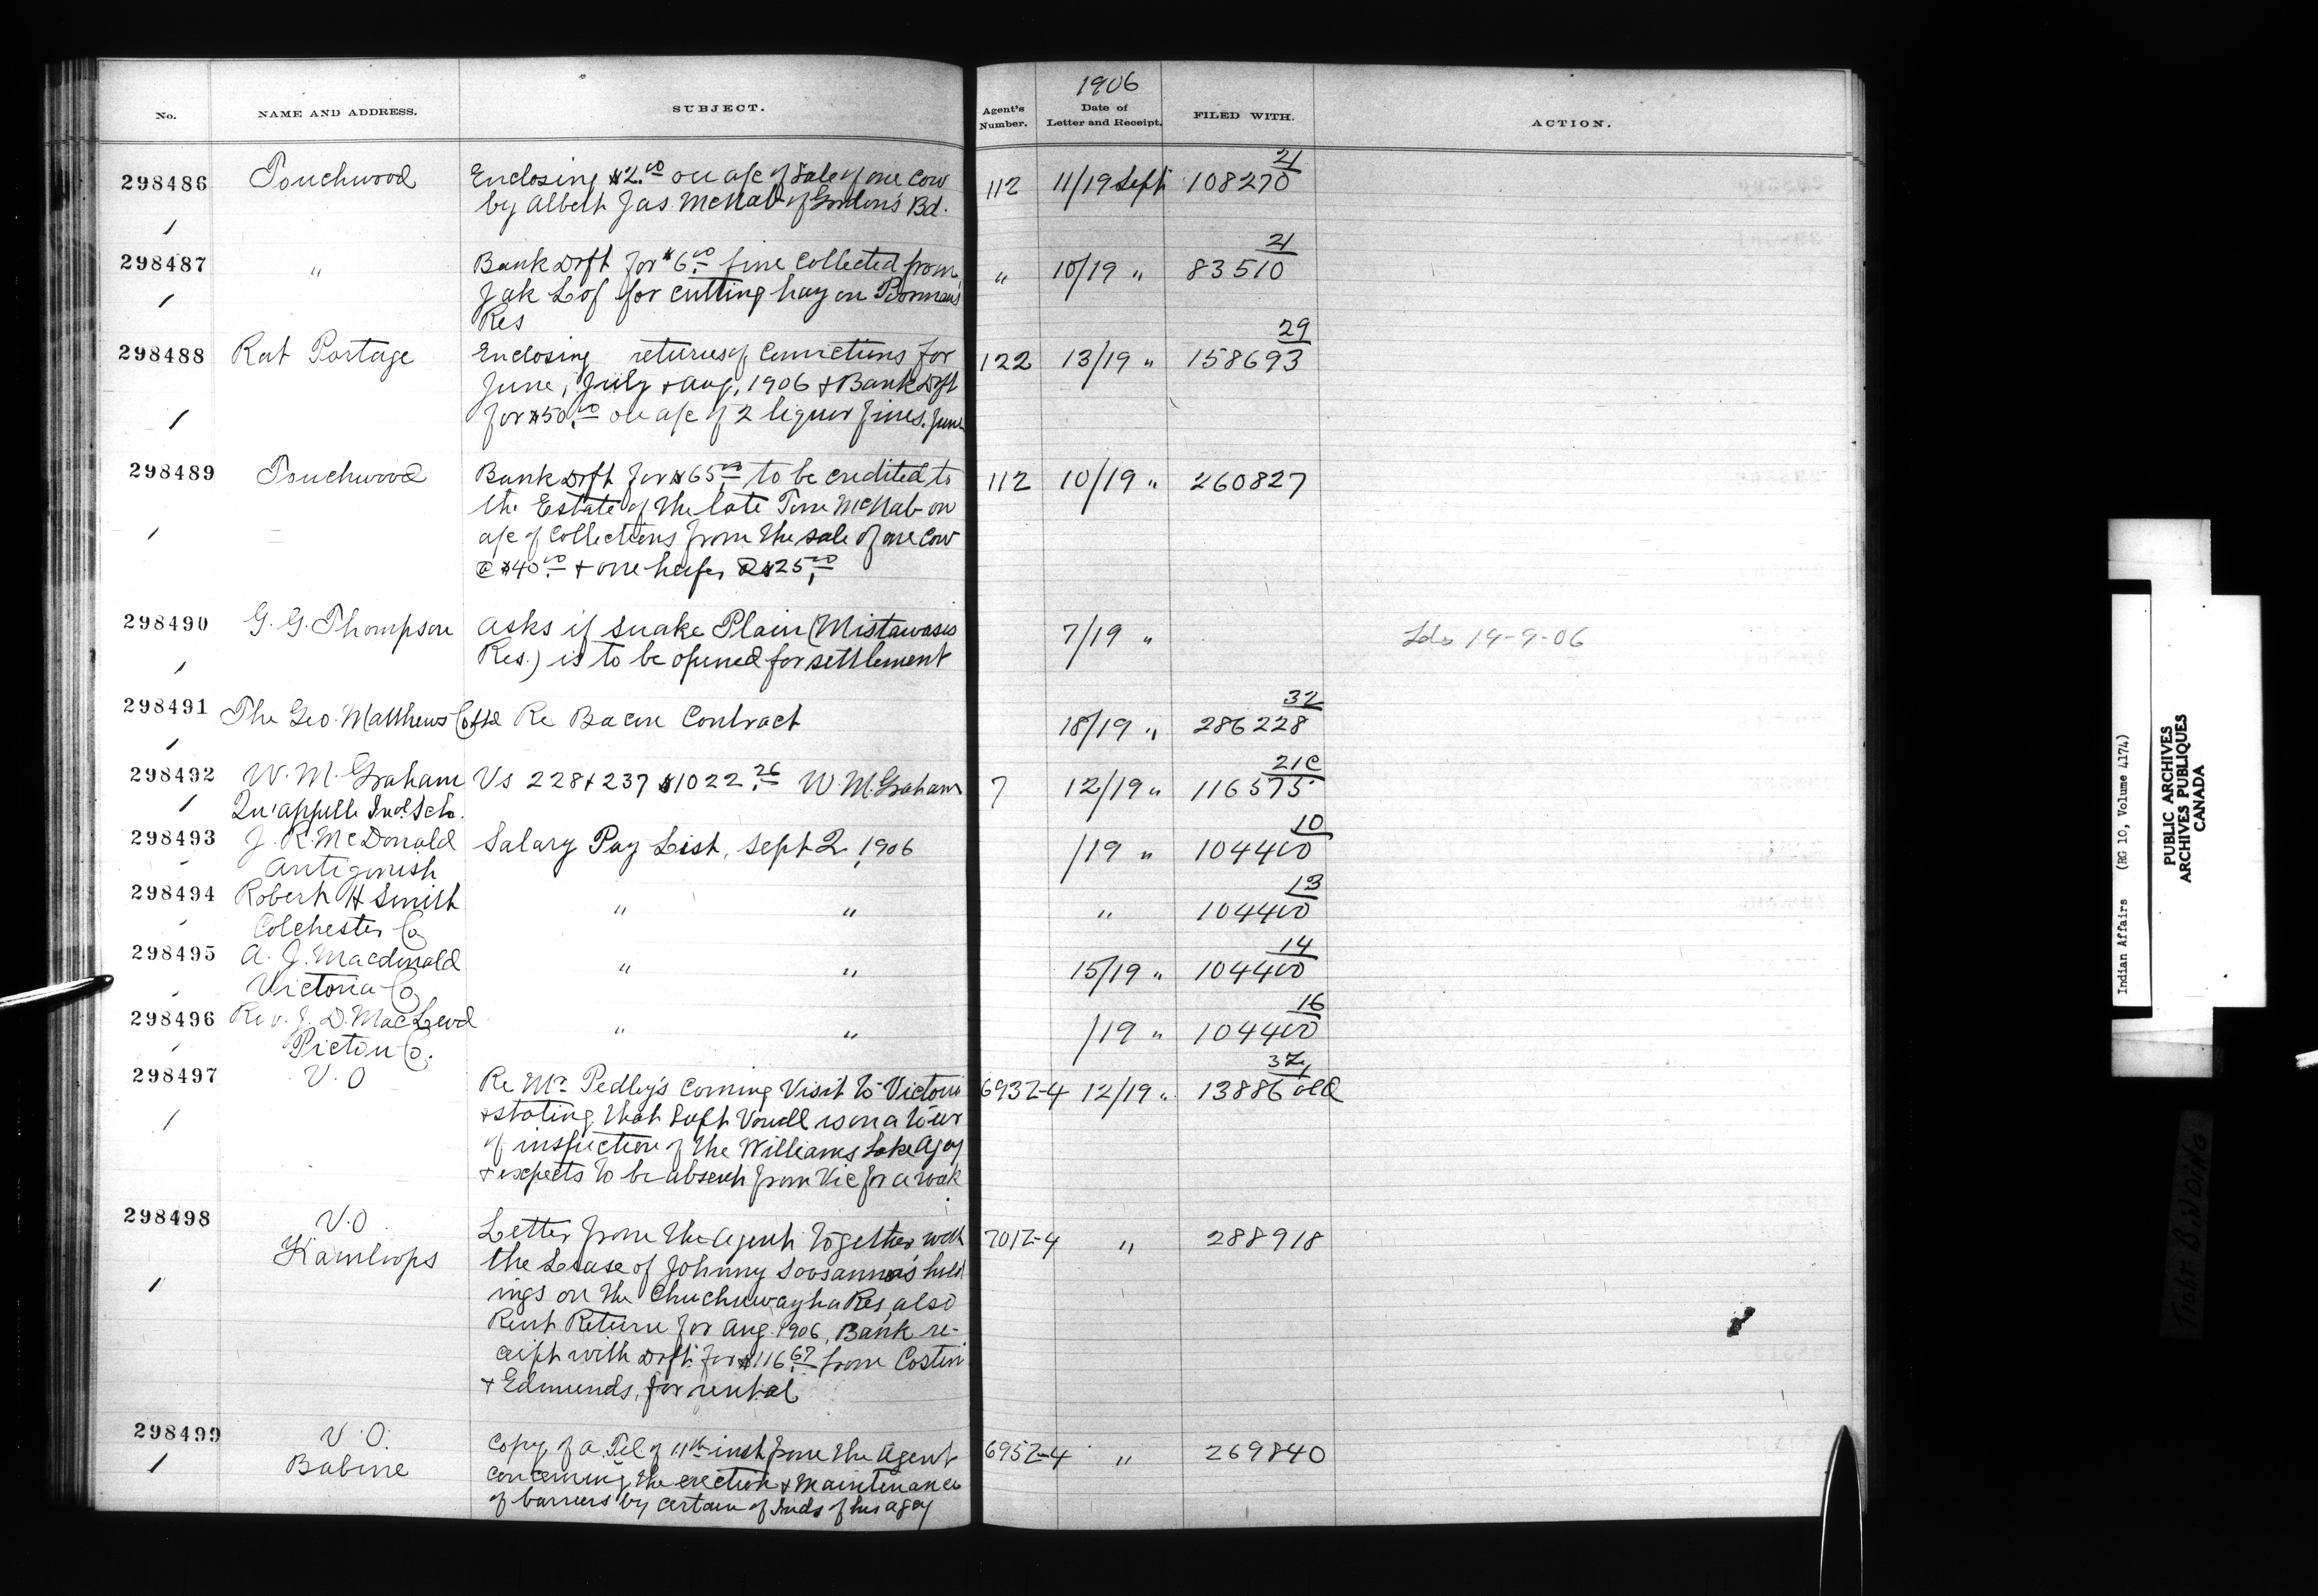 1906
No.
NAME AND ADDRESS.
SUBJECT.
Agent's Number.
Date of Letter and Receipt.
FILED WITH.
ACTION.
298486 Touchwood Enclosing $2.00 on a/c of Sale of one Cow 112 11/19 Sept 108270 21
by Albert Jas. McNab of Gordon's Bd.
298487 " Bank Drft for $6.00 fine collected from " 10/19 " 83510 21
Jak Lof for cutting hay on Poorman's
Res
298488 Rat Portage Enclosing returns of Convictions for 122 13/19 " 158693 29
June, July & Aug, 1906 & Bank Drft
for $50.00 on a/c of 2 liquor fines. June
298489 Touchwood Bank Drft for $65.00 to be credited to 112 10/19 " 260827
the Estate of the late Tom McNab on
a/c of Collections from the sale of one Cow
@ $40.00 & one heifer @ $25.00
298490 G. G. Thompson asks if Snake Plain (Mistawasis 7/19 " Lds 19-9-06
Res.) is to be opened for settlement
298491 The Geo. Matthews Co Ltd Re Bacon Contract 18/19 " 286228 32
298492 W. M. Graham Vs 228 & 237 $1022.26 W. M. Graham 7 12/19 " 116575 21C
Qu'appelle Ind. Sch.
298493 J. R. McDonald Salary Pay List, Sept 2, 1906 /19 " 104400 10
Antigonish
298494 Robert H Smith " " " 104400 13
Colchester Co
298495 A. J. Macdonald " " 15/19 " 104400 14
Victoria Co
298496 Rev. J. D. MacLeod " " /19 " 104400 16
Pictou Co.
298497 V. O Re Mr. Pedley's coming Visit to Victoria 693Z-4 12/19 " 13886 old
& stating that Supt Vowell is on a tour
of inspection of the Williams Lake Agcy
& expects to be absent from Vic for a week
298498 V. O. Letter from the Agent together with 701Z-4 " 288918
Kamloops the Lease of Johnny Soosanna's hold
ings on the Chuchuwayha Res, also
Rent Return for Aug. 1906, Bank re-
ceipt with Drft. for $116.67 from Costin
& Edmunds, for rental
298499 V. O. Copy of a Tel of 11th inst from the Agent 695Z-4 " 269840
Babine concerning the erection & maintenance
of barriers by certain of Inds of his agcy
Indian Affairs (RG 10, Volume 4174)
PUBLIC ARCHIVES
ARCHIVES PUBLIQUES
CANADA
TIGHT BINDING